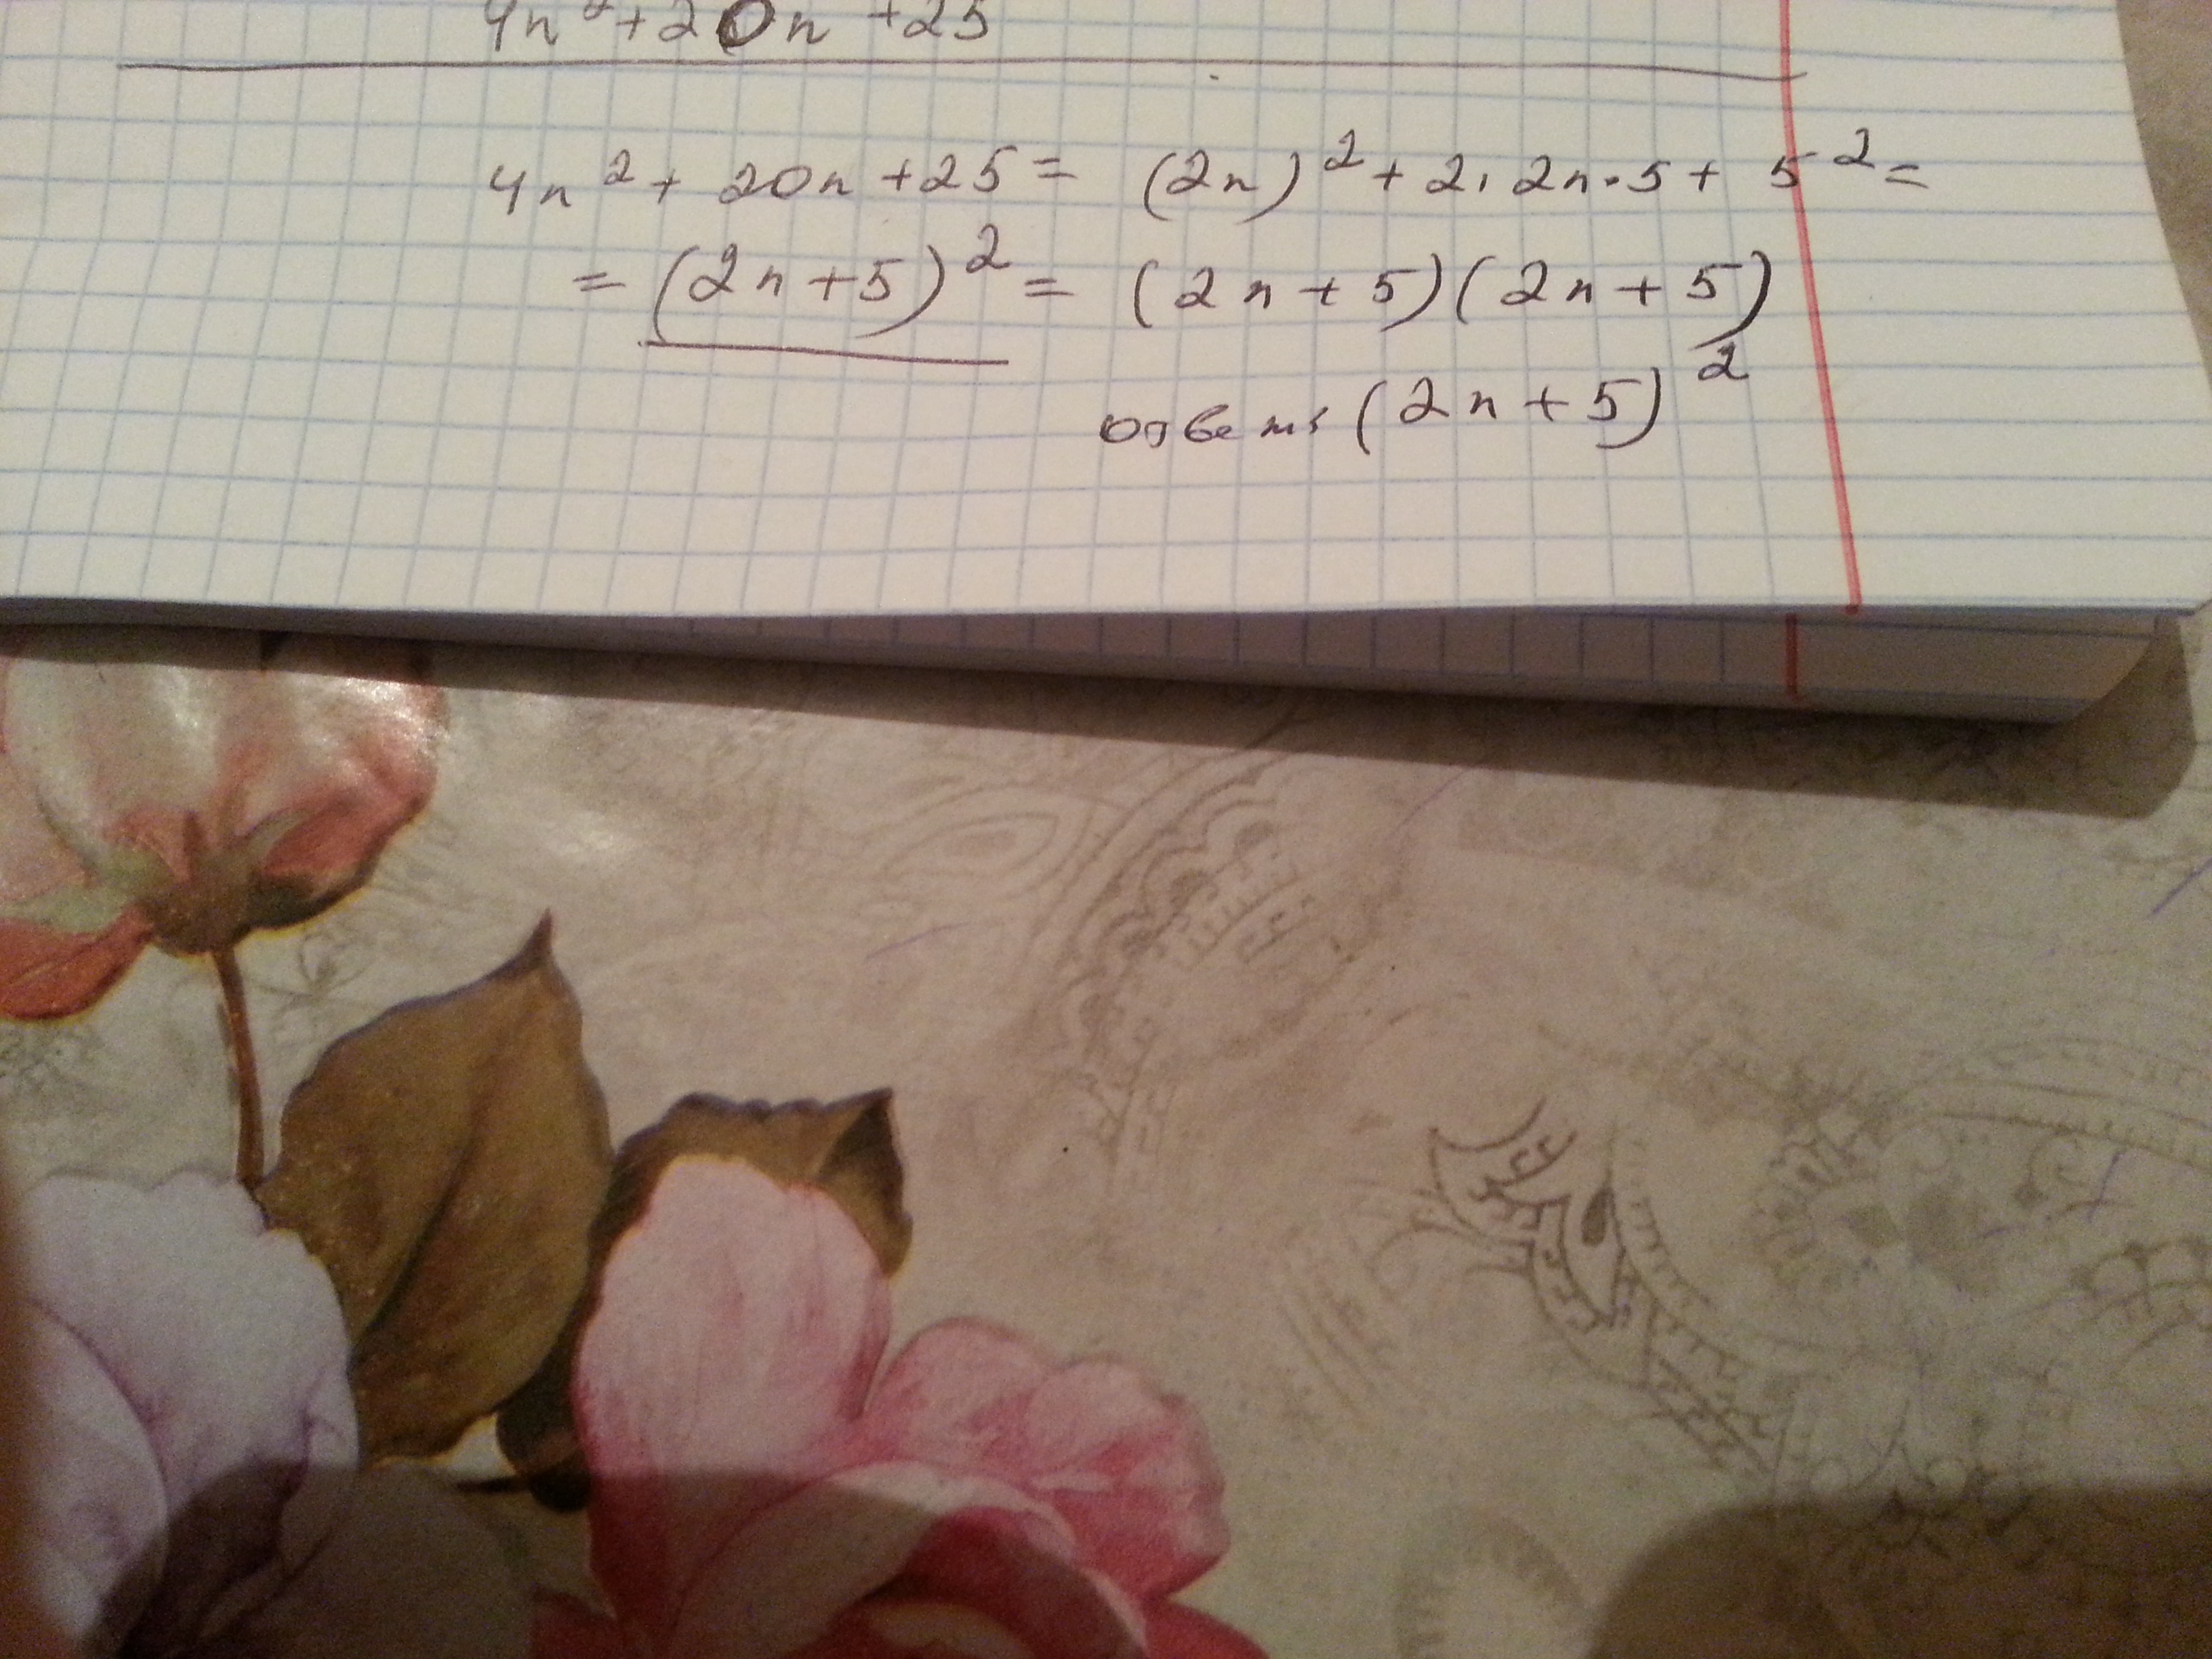 4n²+20n+25
4n²+20n+25= (2n)²+2·2n·5+5²=
=(2n+5)²=(2n+5)(2n+5)
ответ: (2n+5)²